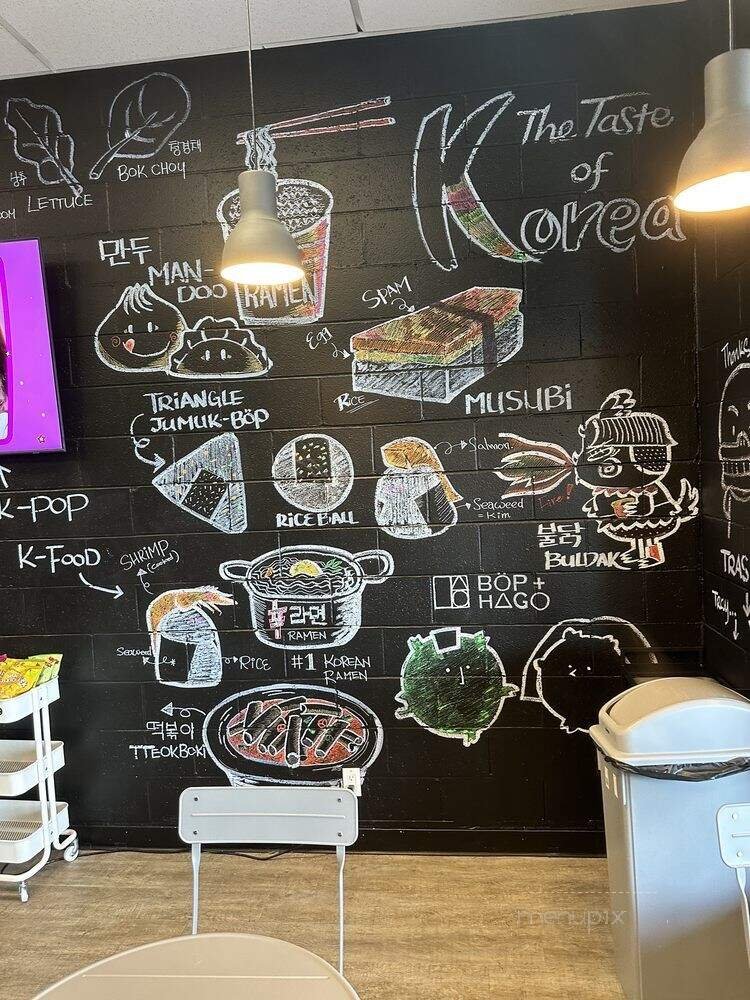 청경채
BOK CHOY
상추
LETTUCE
OOM
The Taste
of
Korea
만두
MAN-
DOO
RAMEN
SPAM
Egg
RICE
MUSUBI
TRIANGLE
JUMUK-BÖP
RICE BALL
Salmon
Seaweed
= Kim
Fire!
불닭
BULDAK
K-POP
K-FOOD
SHRIMP
(Cooked)
Seaweed
RICE
라면
RAMEN
#1 KOREAN
RAMEN
BÖP +
HAGO
떡볶이
TTEOKBOKI
Thanks
TRAS
Tray
menupix